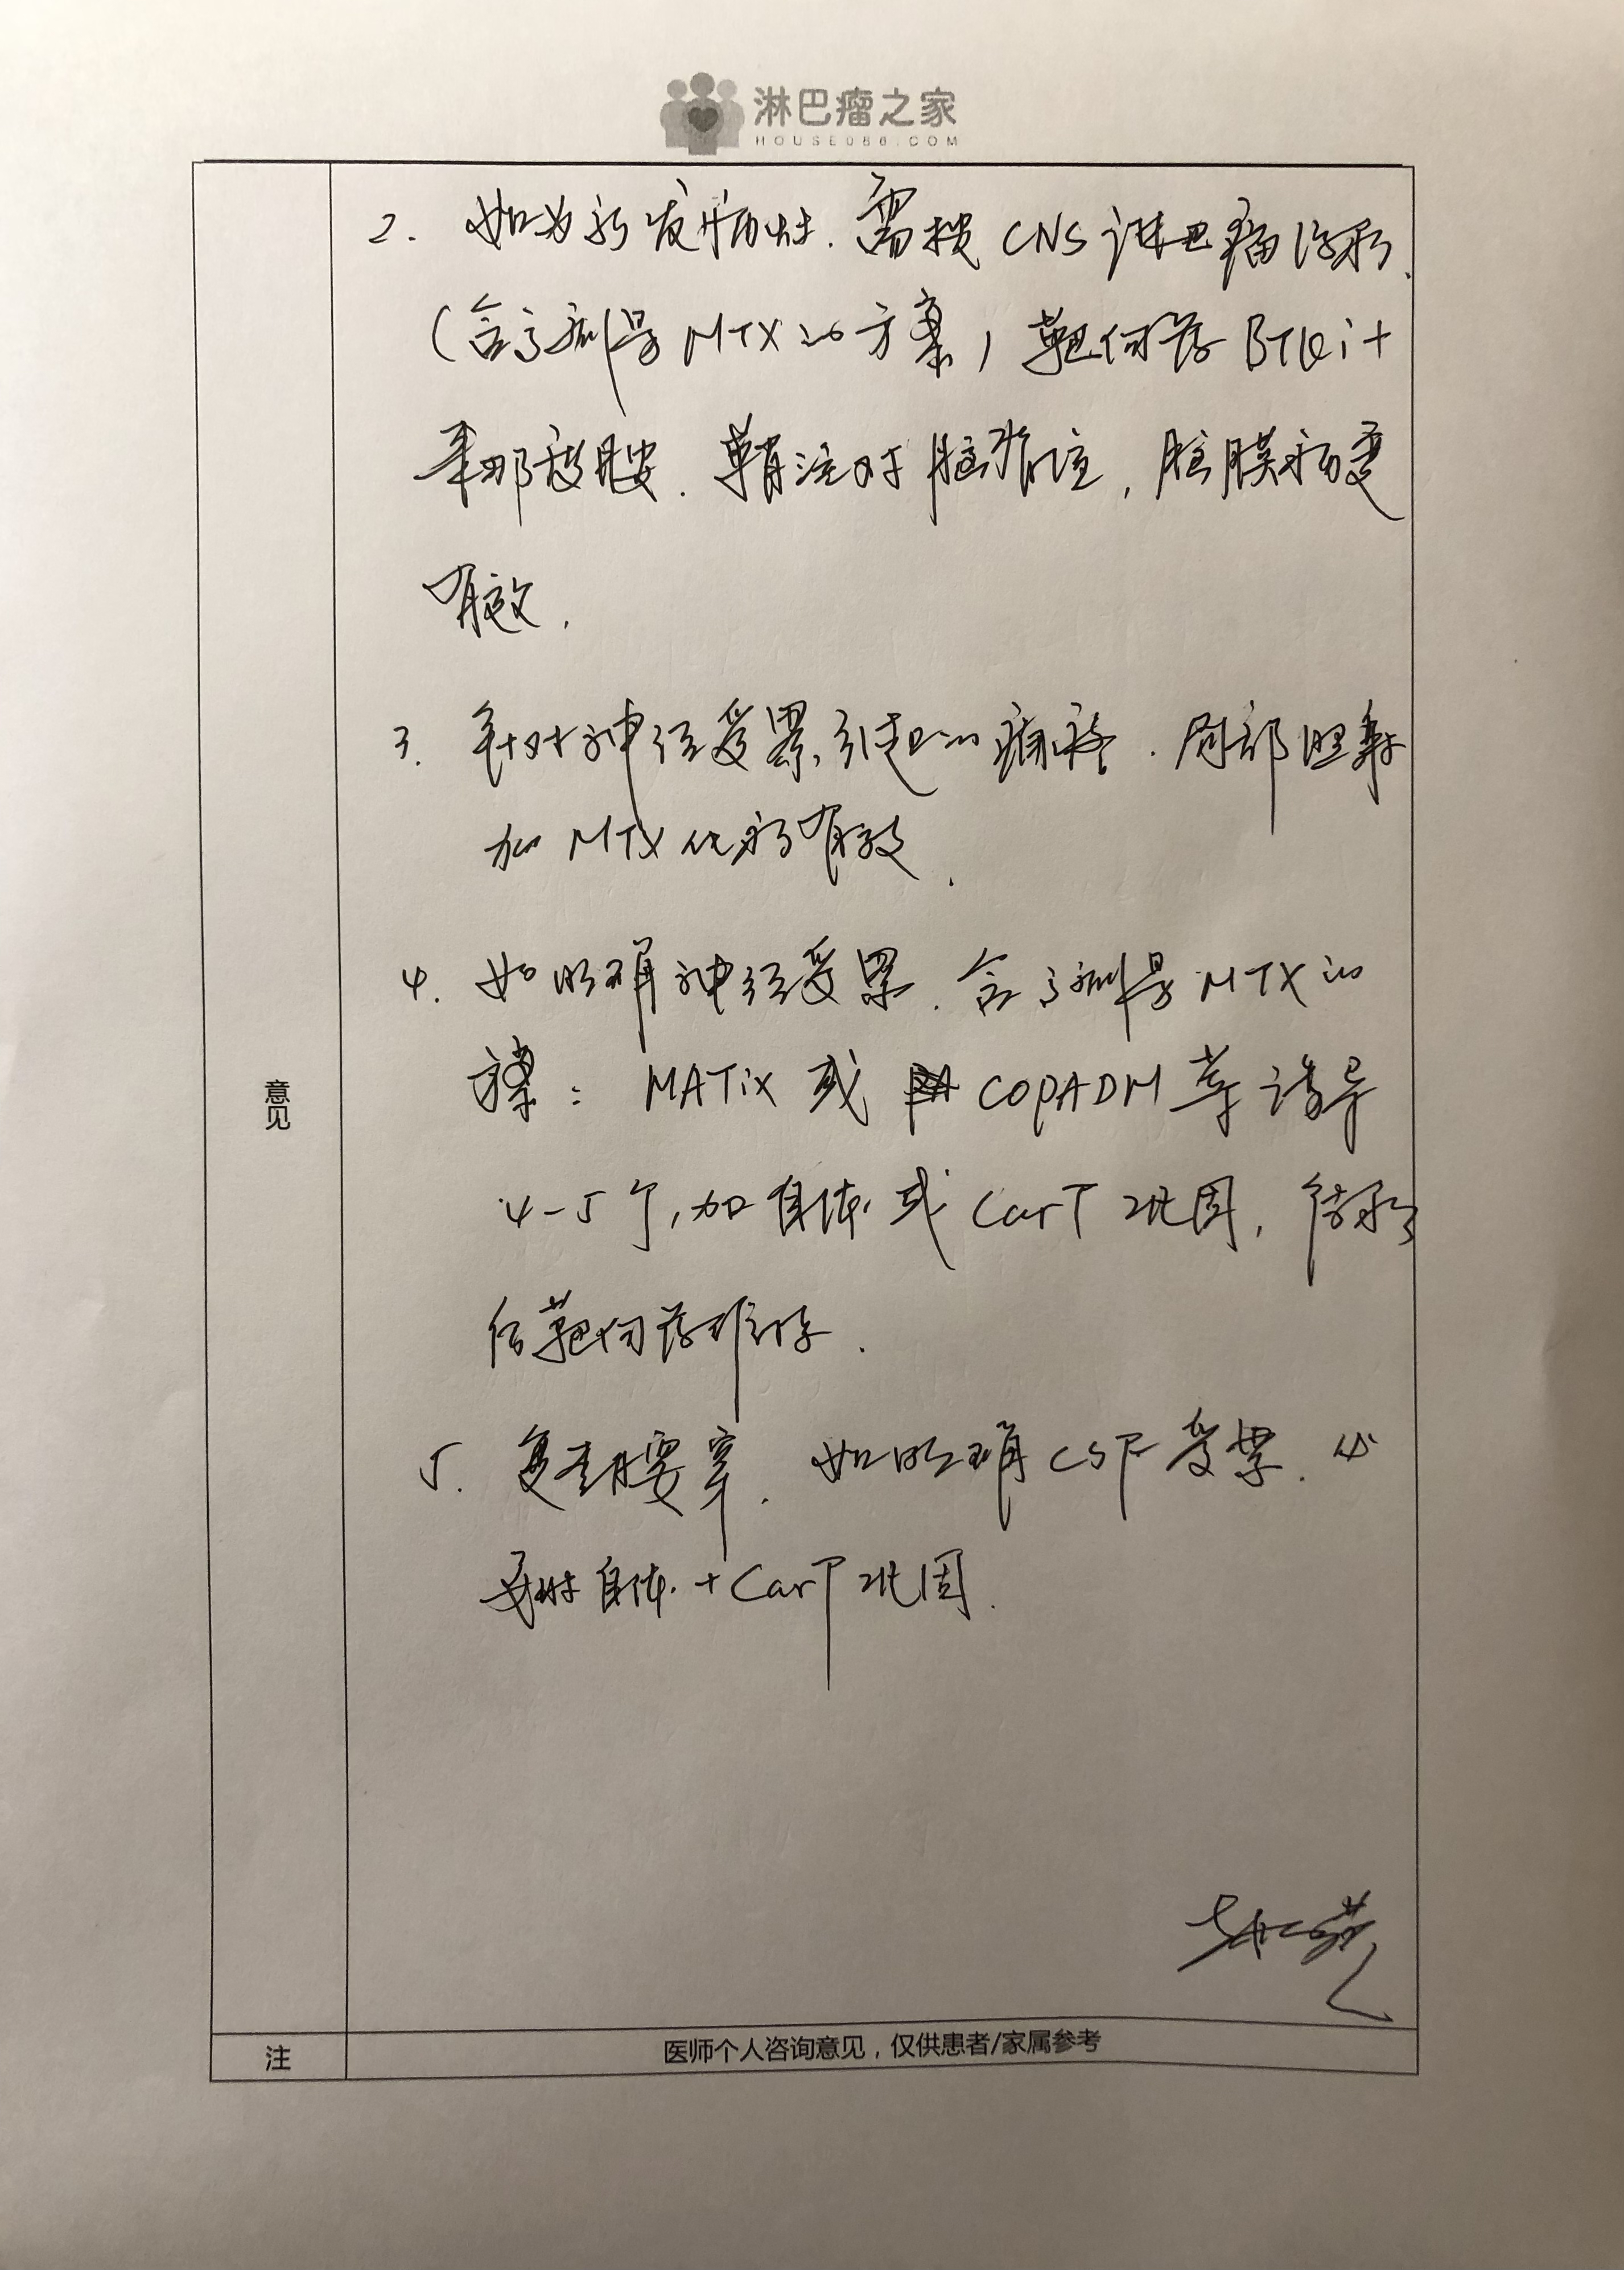 淋巴瘤之家
HOUSE086.COM
2. 如为新发病灶. 需按 CNS 淋巴瘤治疗.
(含高剂量 MTX 的方案) 靶向药 BTKi +
来那度胺. 鞘注对脑脊液, 脑膜病变
有效.
3. 针对神经受累引起的疼痛. 局部照射
加 MTX 化疗有效.
4. 如明确神经受累. 含高剂量 MTX 的
方案: MATix 或 COPADM 等诱导
4-5个, 加自体或 CarT 巩固, 结疗
后靶向药维持.
意见
5. 复查腰穿. 如明确 CSF 受累. 必
要时自体 + CarT 巩固.
注
医师个人咨询意见，仅供患者/家属参考